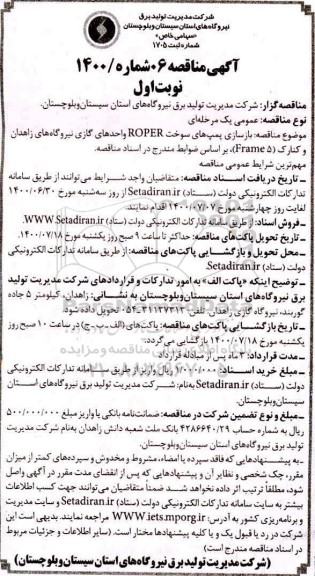 شرکت مدیریت تولید برق
نیروگاه‌های استان سیستان‌وبلوچستان
«سهامی خاص»
شماره ثبت ۱۷۰۵
آگهی مناقصه ۰۶شماره /۱۴۰۰
نوبت اول
مناقصه‌گزار: شرکت مدیریت تولید برق نیروگاه‌های استان سیستان‌وبلوچستان.
نوع مناقصه: عمومی یک مرحله‌ای
موضوع مناقصه: بازسازی پمپ‌های سوخت ROPER واحدهای گازی نیروگاه‌های زاهدان
و کنارک (Frame 5)، بر اساس ضوابط مندرج در اسناد مناقصه.
مهم‌ترین شرایط عمومی مناقصه
ـ تاریخ دریافت اسناد مناقصه: متقاضیان واجد شرایط می‌توانند از طریق سامانه
تدارکات الکترونیکی دولت (ستاد) Setadiran.ir از روز سه‌شنبه مورخ ۱۴۰۰/۰۶/۳۰
لغایت روز چهارشنبه مورخ ۱۴۰۰/۰۷/۰۷ اقدام نمایند.
ـ فروش اسناد: از طریق سامانه تدارکات الکترونیکی دولت (ستاد) WWW.Setadiran.ir.
ـ تاریخ تحویل پاکت‌های مناقصه: حداکثر تا ساعت ۹ صبح روز یکشنبه مورخ ۱۴۰۰/۰۷/۱۸
ـ محل تحویل و بازگشایی پاکت‌های مناقصه: از طریق سامانه تدارکات الکترونیکی
دولت (ستاد) Setadiran.ir.
ـ توضیح اینکه «پاکت الف» به امور تدارکات و قراردادهای شرکت مدیریت تولید
برق نیروگاه‌های استان سیستان‌وبلوچستان به نشانی: زاهدان، کیلومتر ۵ جاده
گوربند، نیروگاه گازی زاهدان، تلفن: ۳۱۱۳۷۳۱۳-۰۵۴ تحویل داده شود.
ـ تاریخ بازگشایی پاکت‌های مناقصه: پاکت‌های (الف-ب-ج) در ساعت ۱۰ صبح روز
یکشنبه مورخ ۱۴۰۰/۰۷/۱۸ بازگشایی می‌گردد.
ـ مدت قرارداد: ۳ ماه پس از مبادله قرارداد.
ـ مبلغ خرید اسناد: ۱/۰۰۰/۰۰۰ ریال واریز از طریق سامانه تدارکات الکترونیکی
دولت (ستاد) Setadiran.ir به‌نام: شرکت مدیریت تولید برق نیروگاه‌های استان
سیستان‌وبلوچستان.
ـ مبلغ و نوع تضمین شرکت در مناقصه: ضمانت‌نامه بانکی یا واریز مبلغ ۵۰۰/۰۰۰/۰۰۰
ریال به شماره حساب ۴۲۸۶۶۴۰/۲۹ بانک ملت شعبه دانش زاهدان به‌نام شرکت مدیریت
تولید برق نیروگاه‌های استان سیستان‌وبلوچستان.
ـ به پیشنهادهایی که فاقد سپرده یا امضاء، مشروط و مخدوش و سپرده‌های کمتر از میزان
مقرر، چک شخصی و نظایر آن و پیشنهادهایی که پس از انقضای مدت مقرر در آگهی واصل
شود، مطلقاً ترتیب اثر داده نخواهد شد. ضمناً متقاضیان می‌توانند جهت کسب اطلاعات
بیشتر به سایت سامانه تدارکات الکترونیکی دولت (ستاد) Setadiran.ir و سایت مدیریت
و برنامه‌ریزی کشور به آدرس: WWW.iets.mporg.ir مراجعه نمایند. بدیهی است این
شرکت در رد یا قبول یک و یا کلیه پیشنهادها مختار است. (سایر اطلاعات و جزئیات مربوط
در اسناد مناقصه مندرج است)
(شرکت مدیریت تولید برق نیروگاه‌های استان سیستان‌وبلوچستان)